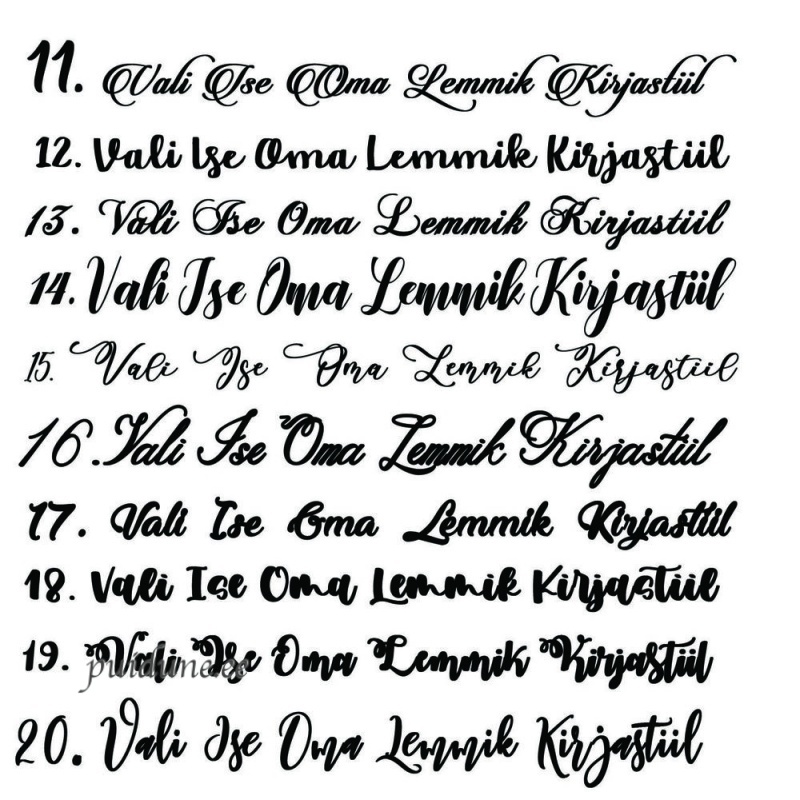 11. Vali Ise Oma Lemmik Kirjastiil
12. Vali Ise Oma Lemmik Kirjastiil
13. Vali Ise Oma Lemmik Kirjastiil
14. Vali Ise Oma Lemmik Kirjastiil
15. Vali Ise Oma Lemmik Kirjastiil
16. Vali Ise Oma Lemmik Kirjastiil
17. Vali Ise Oma Lemmik Kirjastiil
18. Vali Ise Oma Lemmik Kirjastiil
19. Vali Ise Oma Lemmik Kirjastiil
puidune.ee
20. Vali Ise Oma Lemmik Kirjastiil